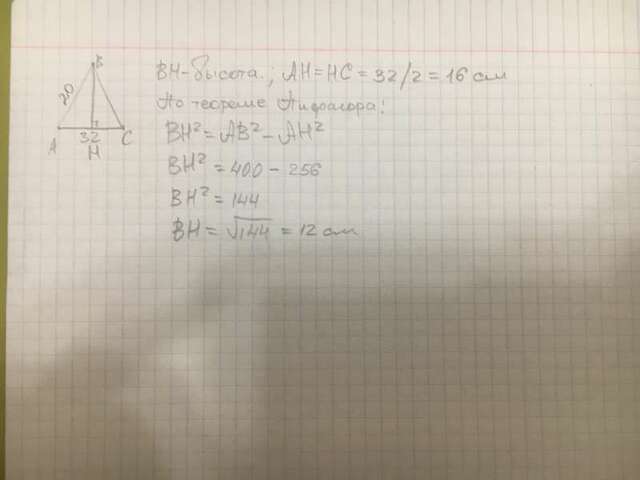 B
20
A 32 C
H
BH - высота.; AH = HC = 32/2 = 16 см
По теореме Пифагора:
BH² = AB² - AH²
BH² = 400 - 256
BH² = 144
BH = √144 = 12 см